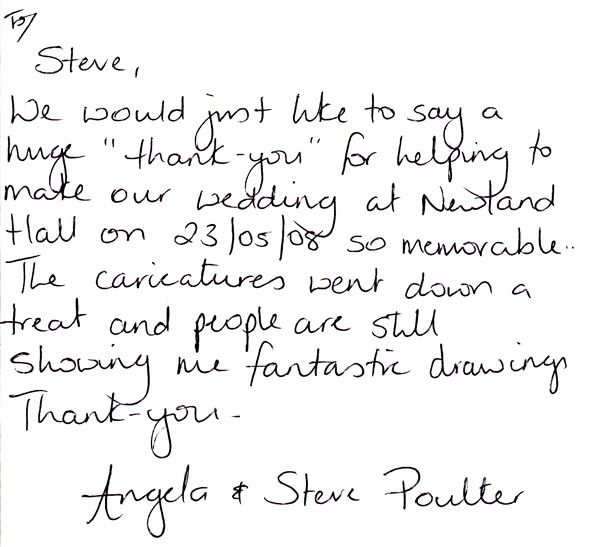 To/
Steve,
We would just like to say a
huge "thank-you" for helping to
make our wedding at Newland
Hall on 23/05/08 so memorable..
The caricatures went down a
treat and people are still
showing me fantastic drawings
Thank-you -
Angela & Steve Poulter